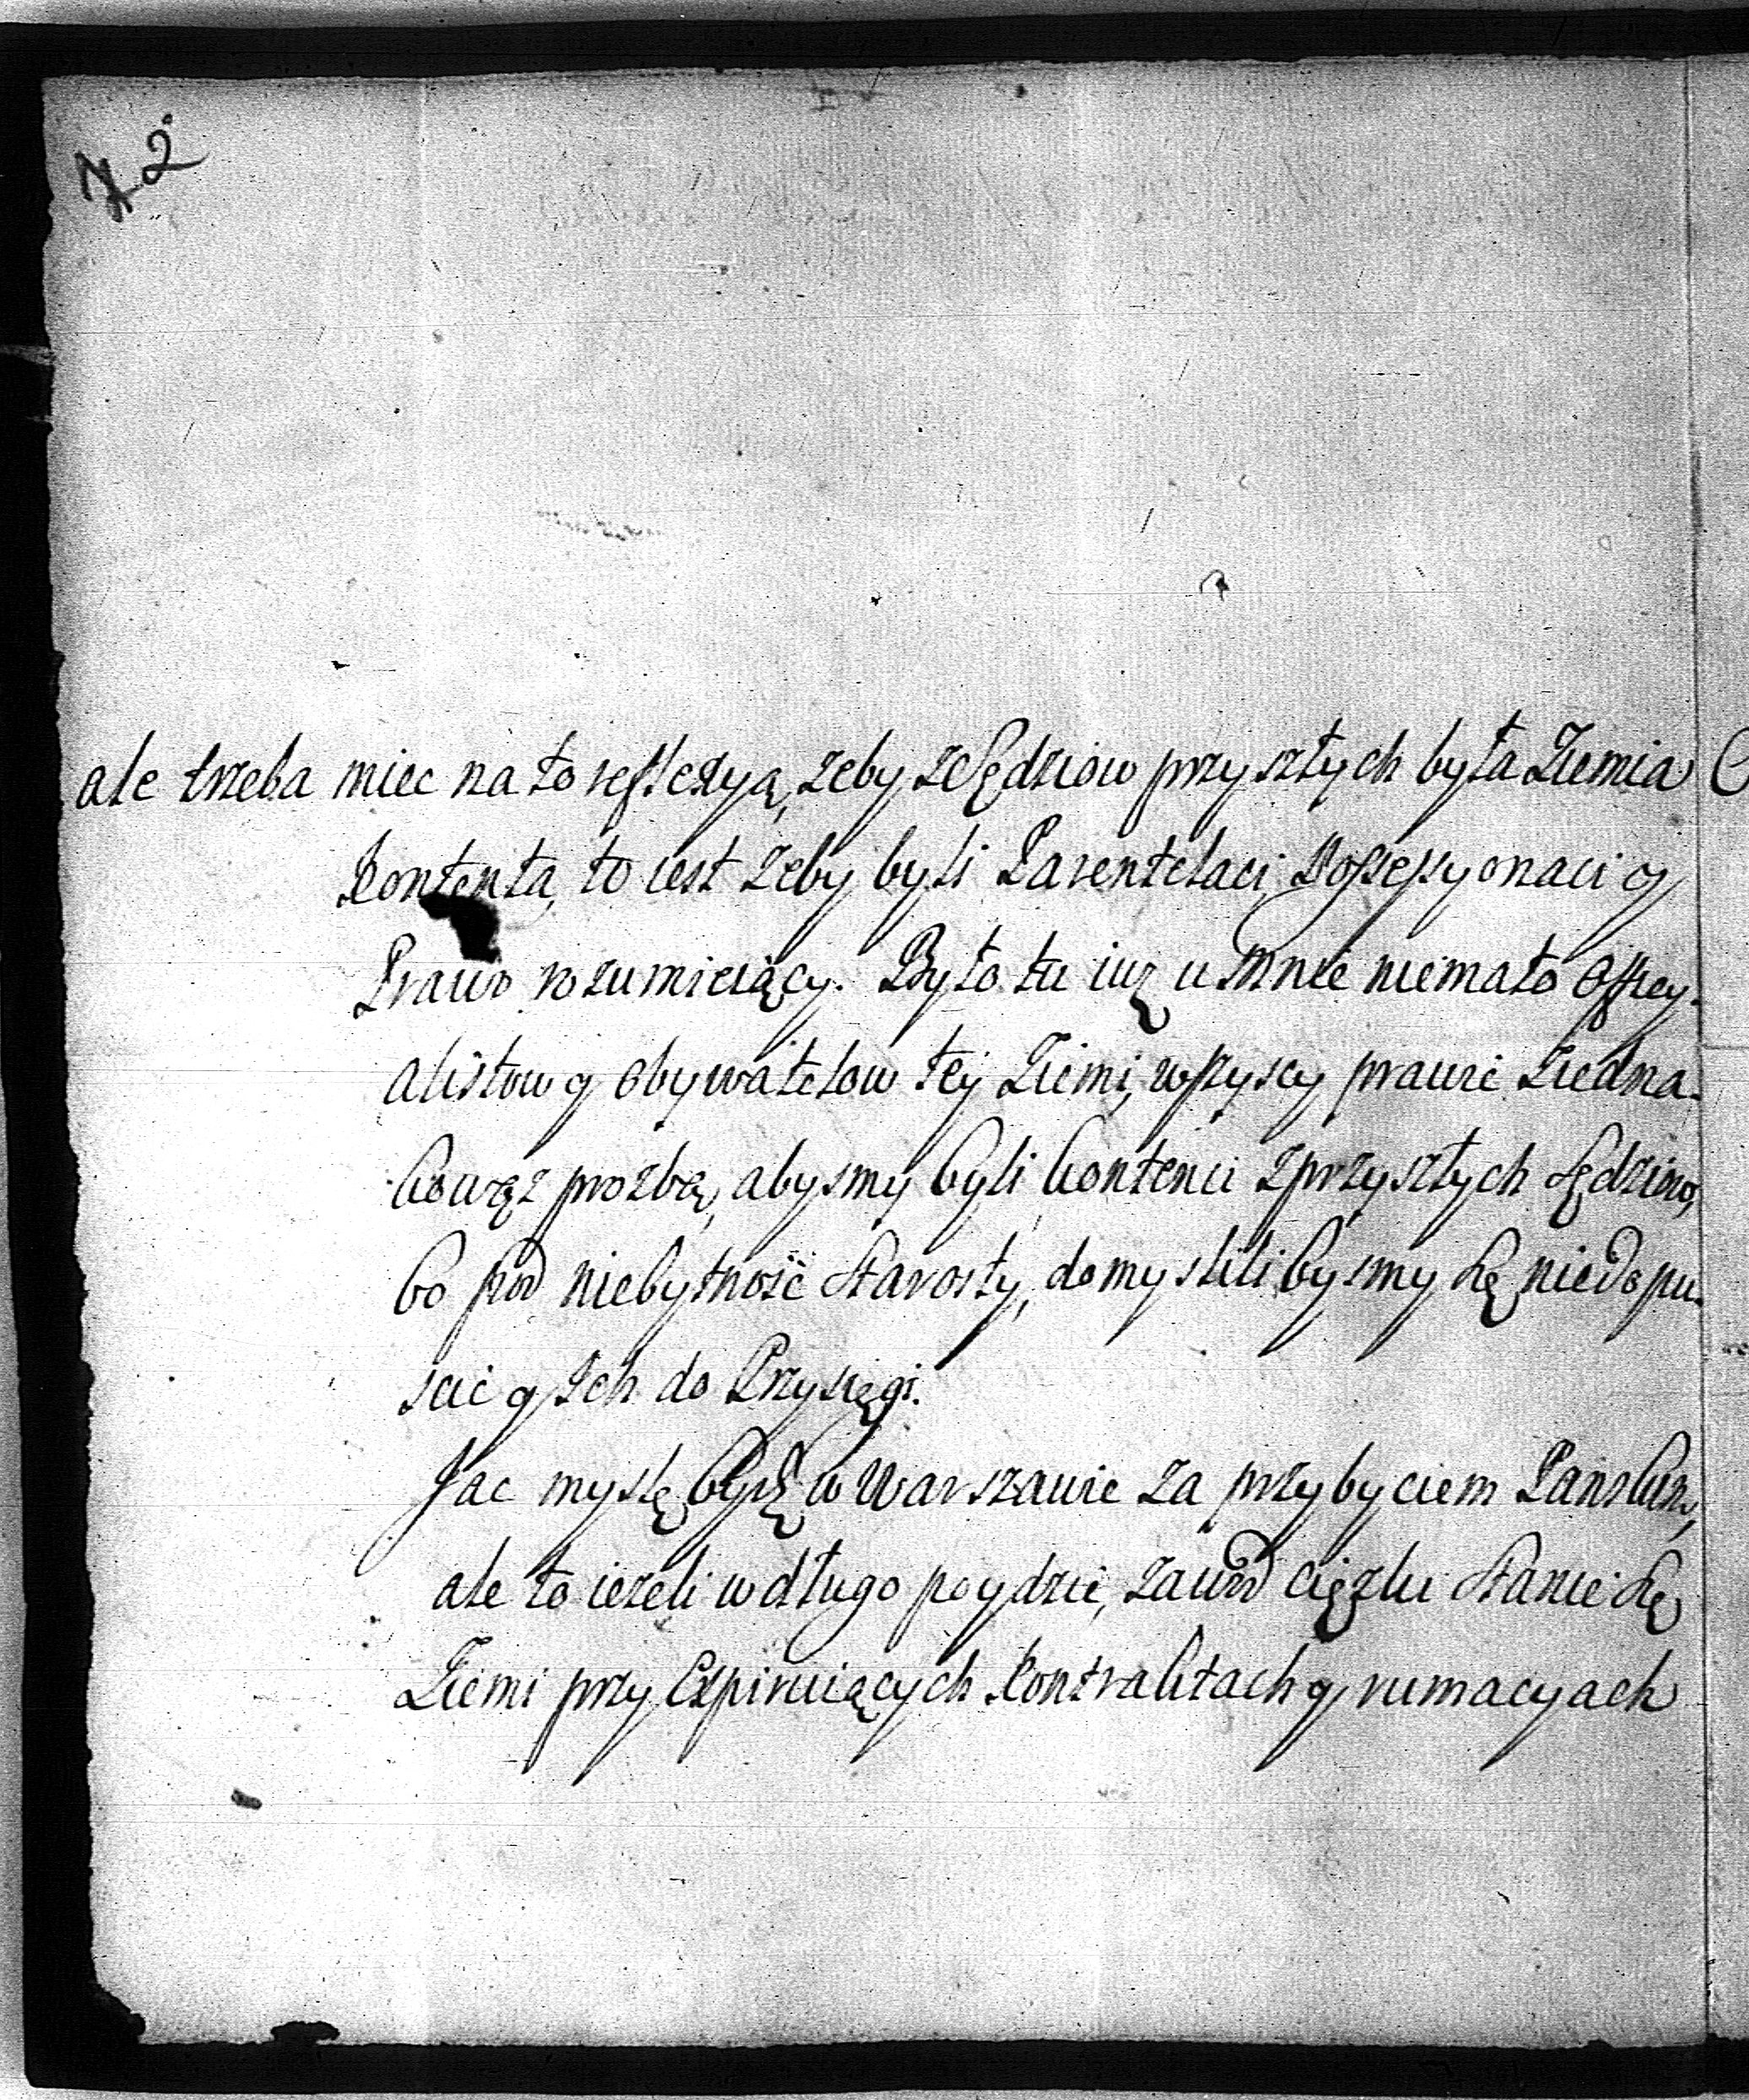 2
ale trzeba miec na to reflexyą, zeby z Sędziow przyszłych była Ziemia
kontenta, to iest zeby byli Parentelaci, Possessyonaci y
Prawo rozumieiący. Było tu iuz u mnie niemało Officy-
alistow y obywatelow tey Ziemi, wszyscy prawie z iedna-
kową prozbą, abysmy byli kontenci z przyszłych Sędziow,
bo pod niebytność Starosty, domyslilibysmy się niedopu-
scić y Ich do Przysięgi.
Jac myslę bydz w Warszawie za przybyciem Panskim,
ale to iezeli w długo poydzie, zawod cięzki stanie się
Ziemi przy Expiruiących Kontraktach y rumacyach